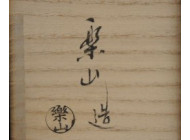 樂山
造
樂山